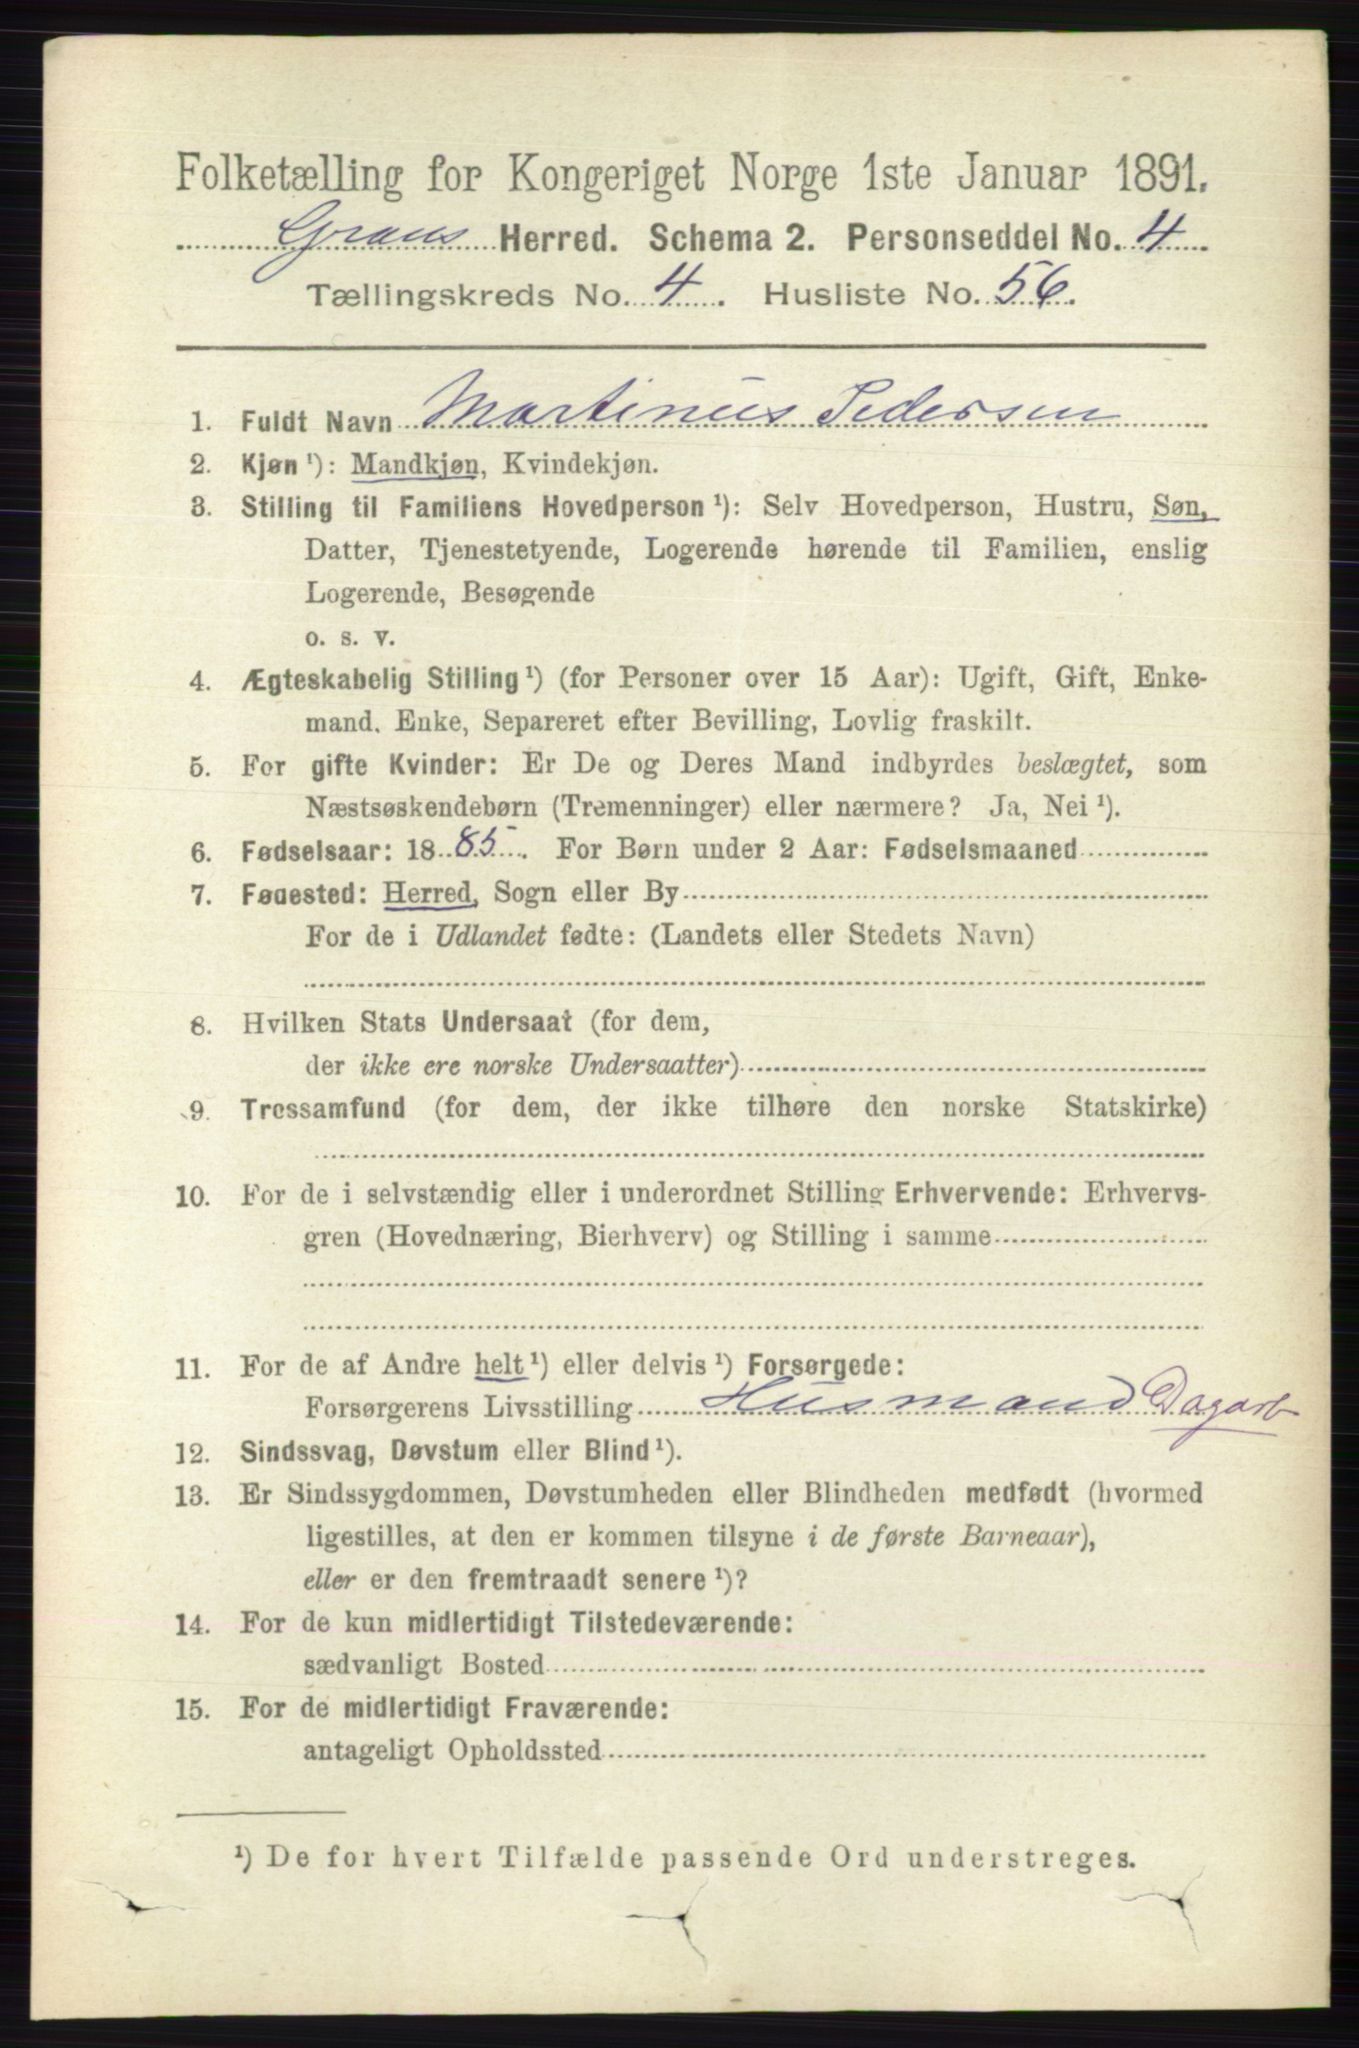 Folketælling for Kongeriget Norge 1ste Januar 1891.
Grans Herred. Schema 2. Personseddel No. 4
Tællingskreds No. 4. Husliste No. 56.
1. Fuldt Navn Martinus Pedersen
2. Kjøn ¹): Mandkjøn, Kvindekjøn.
3. Stilling til Familiens Hovedperson ¹): Selv Hovedperson, Hustru, Søn,
Datter, Tjenestetyende, Logerende hørende til Familien, enslig
Logerende, Besøgende
o. s. v.
4. Ægteskabelig Stilling ¹) (for Personer over 15 Aar): Ugift, Gift, Enke-
mand. Enke, Separeret efter Bevilling, Lovlig fraskilt.
5. For gifte Kvinder: Er De og Deres Mand indbyrdes beslægtet, som
Næstsøskendebørn (Tremenninger) eller nærmere? Ja, Nei ¹).
6. Fødselsaar: 1885. For Børn under 2 Aar: Fødselsmaaned
7. Fødested: Herred, Sogn eller By
For de i Udlandet fødte: (Landets eller Stedets Navn)
8. Hvilken Stats Undersaat (for dem,
der ikke ere norske Undersaatter)
9. Trossamfund (for dem, der ikke tilhøre den norske Statskirke)
10. For de i selvstændig eller i underordnet Stilling Erhvervende: Erhvervs-
gren (Hovednæring, Bierhverv) og Stilling i samme
11. For de af Andre helt ¹) eller delvis ¹) Forsørgede:
Forsørgerens Livsstilling Husmand Dagarb
12. Sindssvag, Døvstum eller Blind ¹).
13. Er Sindssygdommen, Døvstumheden eller Blindheden medfødt (hvormed
ligestilles, at den er kommen tilsyne i de første Barneaar),
eller er den fremtraadt senere ¹)?
14. For de kun midlertidigt Tilstedeværende:
sædvanligt Bosted
15. For de midlertidigt Fraværende:
antageligt Opholdssted
¹) De for hvert Tilfælde passende Ord understreges.